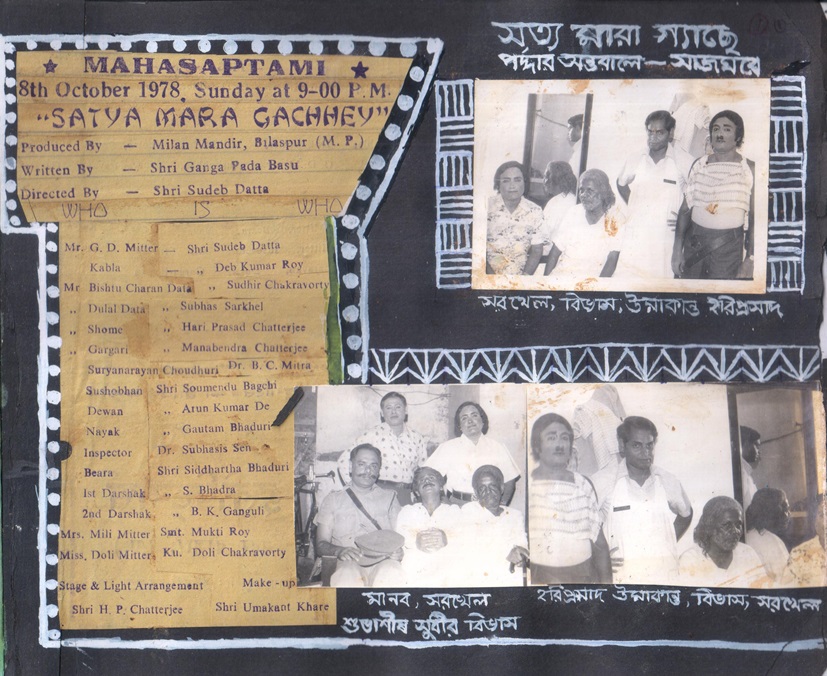 MAHASAPTAMI
8th October 1978, Sunday at 9-00 P.M.
"SATYA MARA GACHHEY"
Produced By — Milan Mandir, Bilaspur (M. P.)
Written By — Shri Ganga Pada Basu
Directed By — Shri Sudeb Datta
WHO IS WHO
Mr. G. D. Mitter — Shri Sudeb Datta
Kabla — „ Deb Kumar Roy
Mr Bishtu Charan Data „ Sudhir Chakravorty
„ Dulal Data „ Subhas Sarkhel
„ Shome „ Hari Prasad Chatterjee
„ Gargari „ Manabendra Chatterjee
Suryanarayan Choudhuri Dr. B. C. Mitra
Sushobhan Shri Soumendu Bagchi
Dewan „ Arun Kumar De
Nayak „ Gautam Bhaduri
Inspector Dr. Subhasis Sen
Beara Shri Siddhartha Bhaduri
1st Darshak „ S. Bhadra
2nd Darshak „ B. K. Ganguli
Mrs. Mili Mitter Smt. Mukti Roy
Miss. Doli Mitter Ku. Doli Chakravorty
Stage & Light Arrangement Make-up
Shri H. P. Chatterjee Shri Umakant Khare
সত্য মারা গ্যাছে
পর্দ্দার অন্তরালে — সাজঘরে
সরখেল, বিভাস, উমাকান্ত হরিপ্রসাদ
মানব, সরখেল
শুভাশীষ সুবীর বিভাস
হরিপ্রসাদ উমাকান্ত, বিভাস, সরখেল